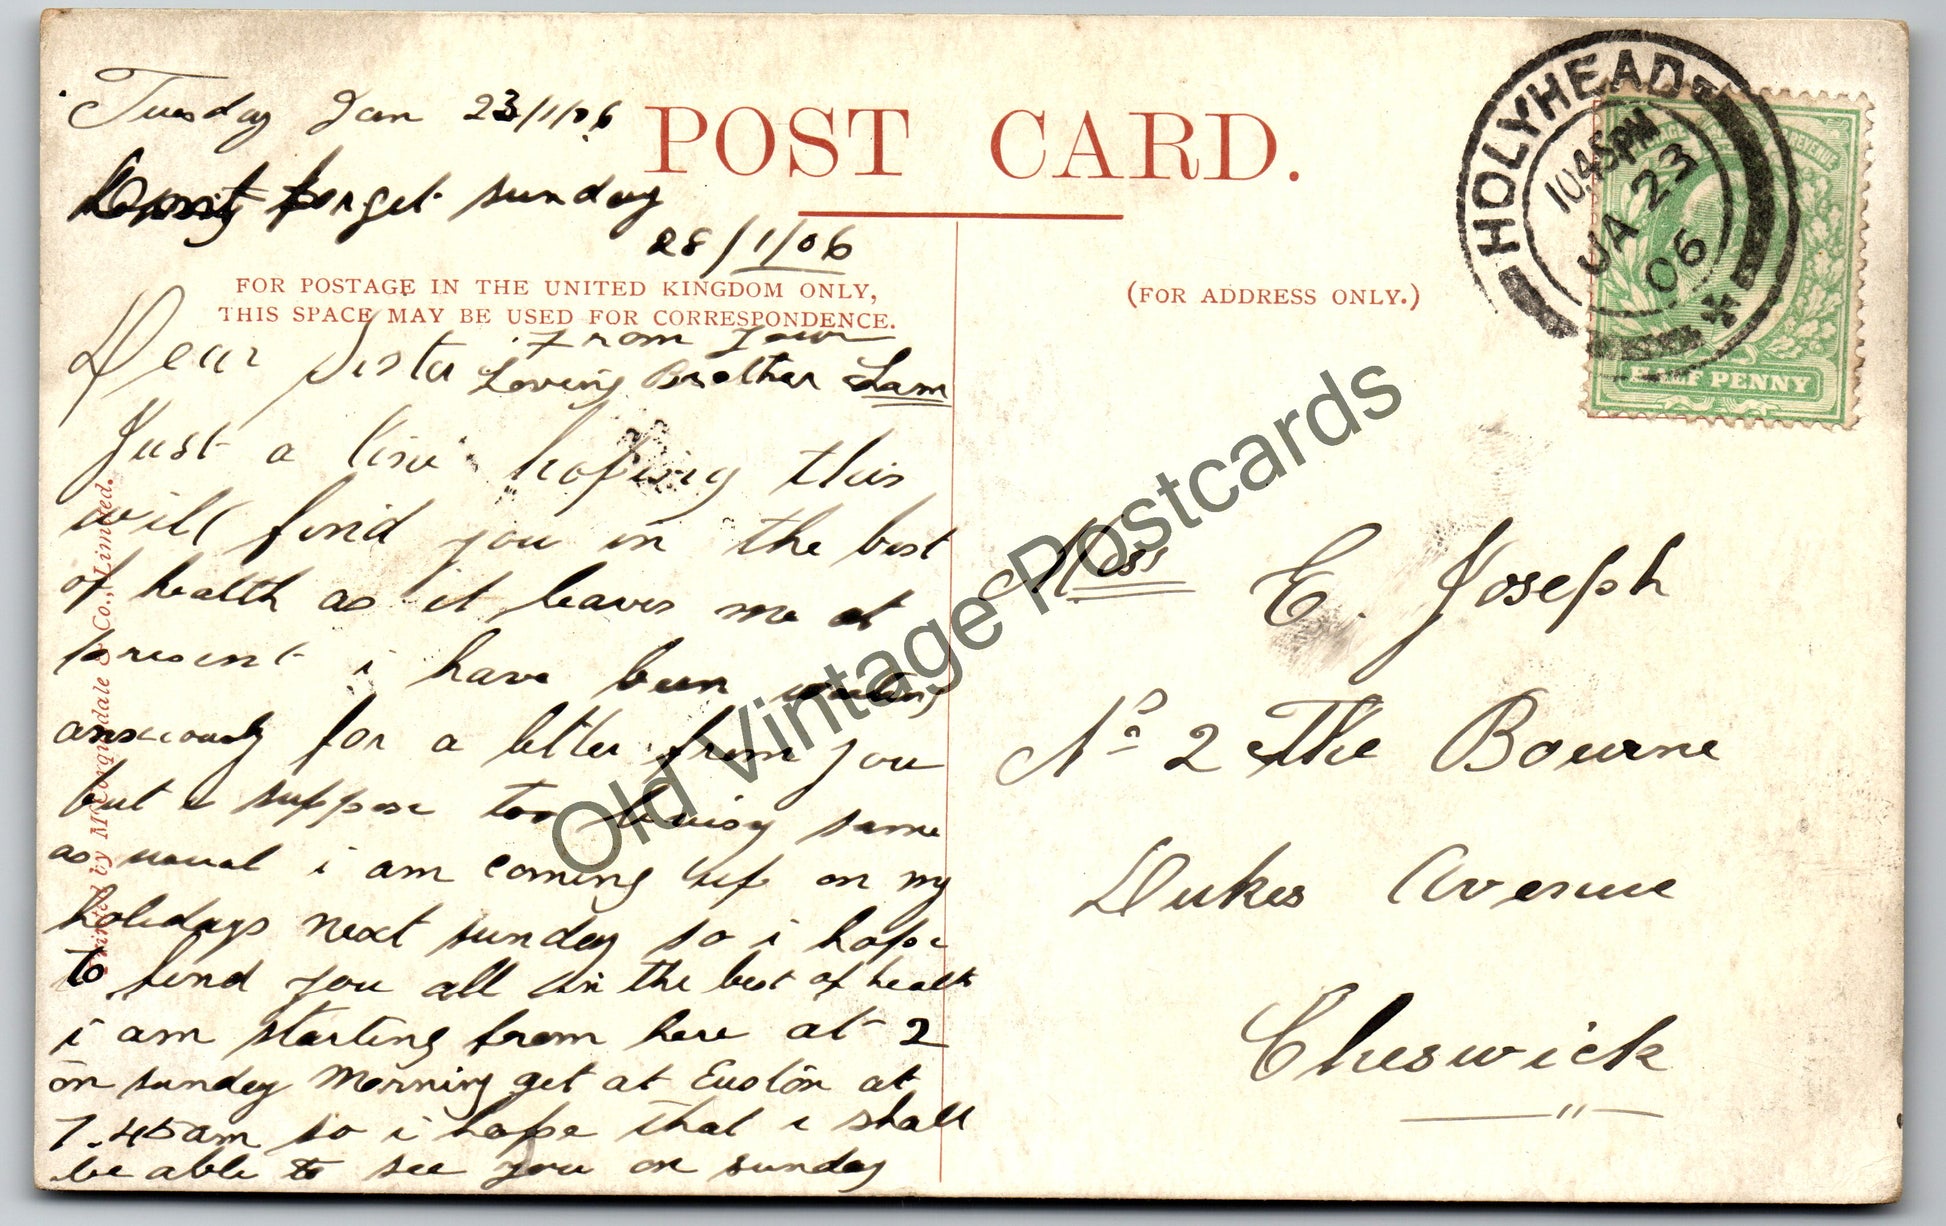 Tuesday Jan 23/1/06
Dont forget sunday
28/1/06
POST CARD.
FOR POSTAGE IN THE UNITED KINGDOM ONLY,
THIS SPACE MAY BE USED FOR CORRESPONDENCE.
(FOR ADDRESS ONLY.)
HOLYHEAD
10.45PM
JA 23
06
HALF PENNY
Dear Sister
From your
Loving Brother Sam
Just a line hoping this
will find you in the best
of health as it leaves me at
present i have been waiting
anxiously for a letter from you
but i suppose too busy same
as usual i am coming up on my
holidays next sunday so i hope
to find you all in the best of health
i am starting from here at 2
on sunday morning get at Euston at
7.45am so i hope that i shall
be able to see you on sunday
Miss E. Joseph
No 2 The Bourne
Dukes Avenue
Cheswick
Printed by McCorquodale & Co., Limited.
Old Vintage Postcards